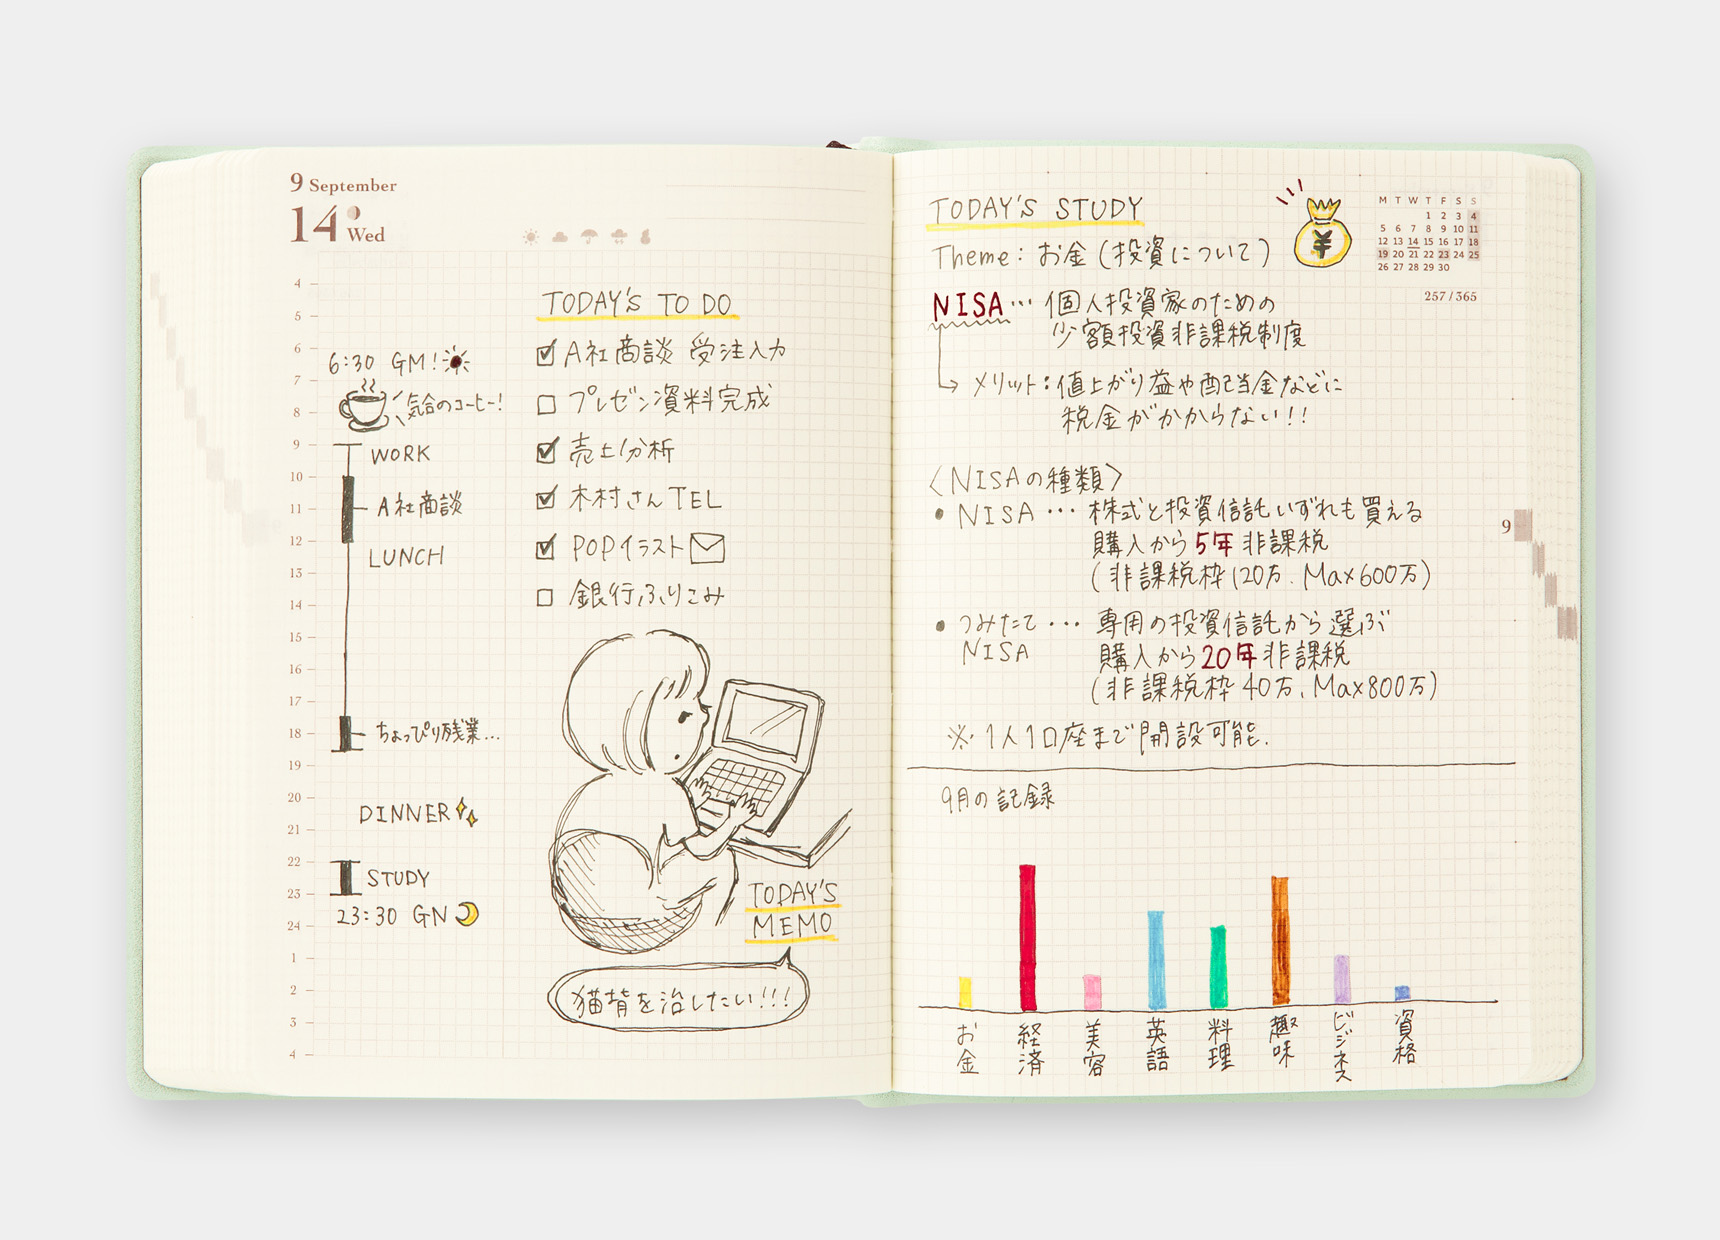 9 September
14 Wed
4
5
6
7
8
9
10
11
12
13
14
15
16
17
18
19
20
21
22
23
24
1
2
3
4
6:30 GM!
気合のコーヒー!
WORK
A社商談
LUNCH
ちょっぴり残業...
DINNER
STUDY
23:30 GN
TODAY'S TO DO
A社商談 受注入力
プレゼン資料完成
売上分析
木村さんTEL
POPイラスト
銀行ふりこみ
TODAY'S
MEMO
猫背を治したい!!!
TODAY'S STUDY
Theme: お金(投資について)
¥
M T W T F S S
1 2 3 4
5 6 7 8 9 10 11
12 13 14 15 16 17 18
19 20 21 22 23 24 25
26 27 28 29 30
257/365
NISA… 個人投資家のための
少額投資非課税制度
メリット:値上がり益や配当金などに
税金がかからない!!
〈NISAの種類〉
• NISA … 株式と投資信託いずれも買える
購入から5年非課税
(非課税枠120万、Max600万)
• つみたて … 専用の投資信託から選ぶ
NISA 購入から20年非課税
(非課税枠40万、Max800万)
※1人1口座まで開設可能.
9
9月の記録
お金
経済
美容
英語
料理
趣味
ビジネス
資格